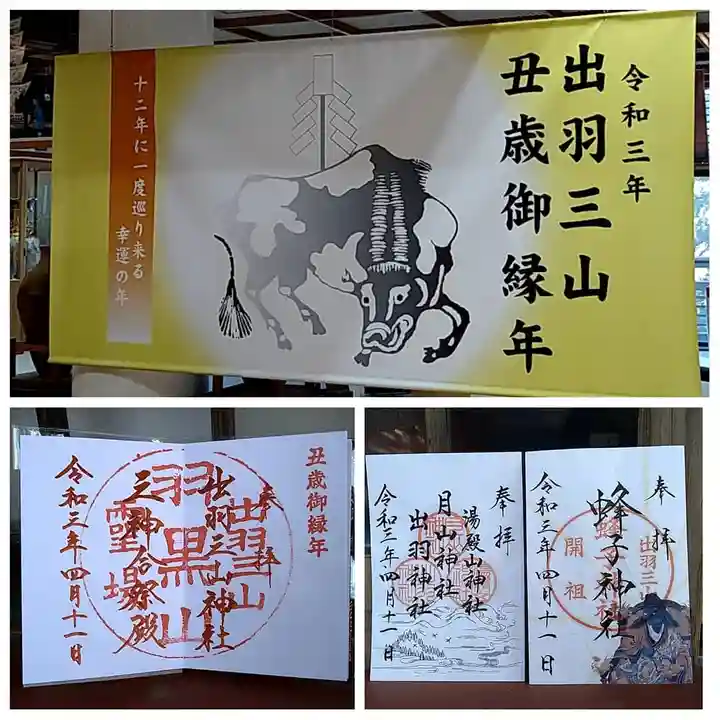 令和三年
出羽三山
丑歳御縁年
十二年に一度巡り来る
幸運の年
丑歳御縁年
奉拝
出羽三山神社
三神合祭殿
令和三年四月十一日
出羽山
羽黒山
霊場
奉拝
湯殿山神社
月山神社
出羽神社
令和三年四月十一日
奉拝
出羽三山
蜂子神社
開祖
令和三年四月十一日